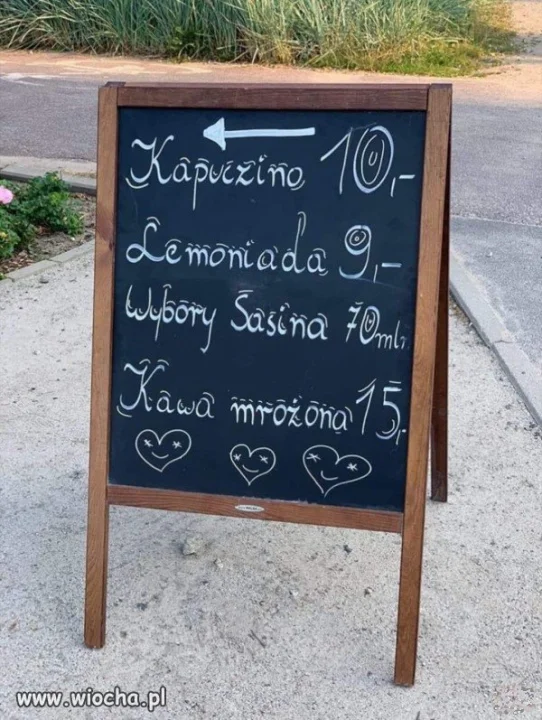 Kapuczino 10,-
Lemoniada 9,-
Wybory Sasina 70mln
Kawa mrożona 15,-
www.wiocha.pl